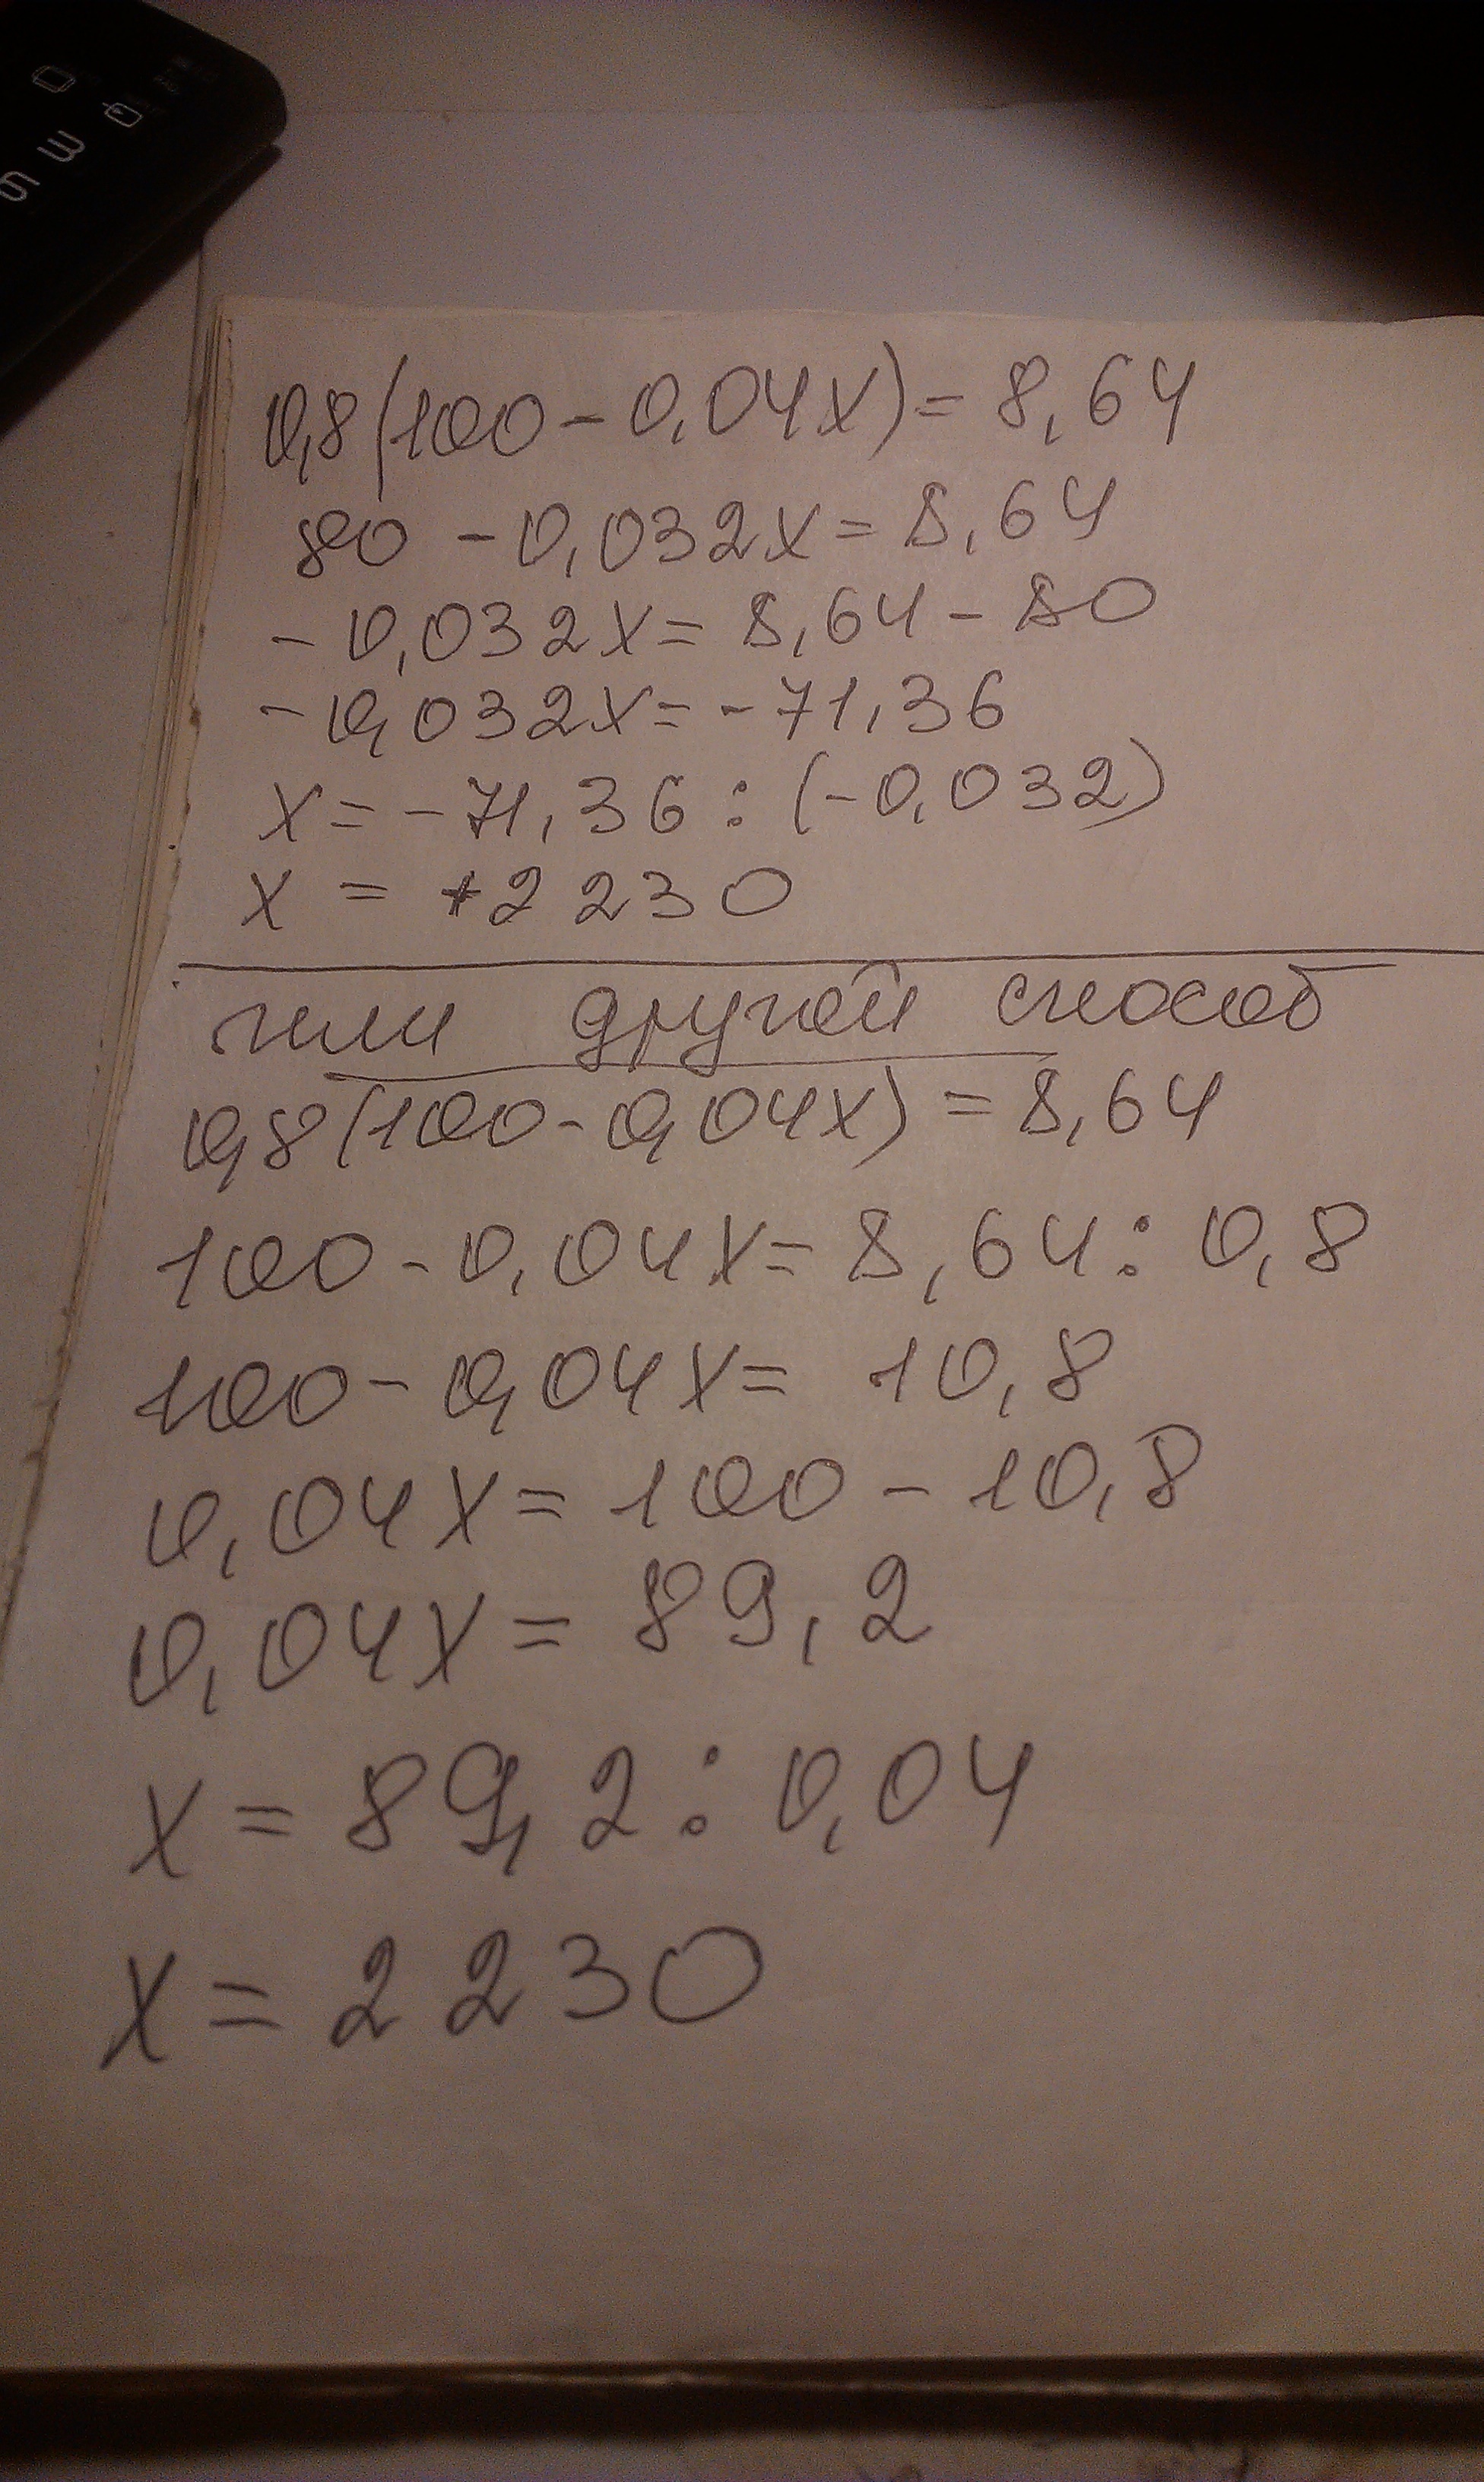 0,8(100-0,04x)=8,64
80-0,032x=8,64
-0,032x=8,64-80
-0,032x=-71,36
x=-71,36:(-0,032)
x=+2230
или другой способ
0,8(100-0,04x)=8,64
100-0,04x=8,64:0,8
100-0,04x=10,8
0,04x=100-10,8
0,04x=89,2
x=89,2:0,04
x=2230